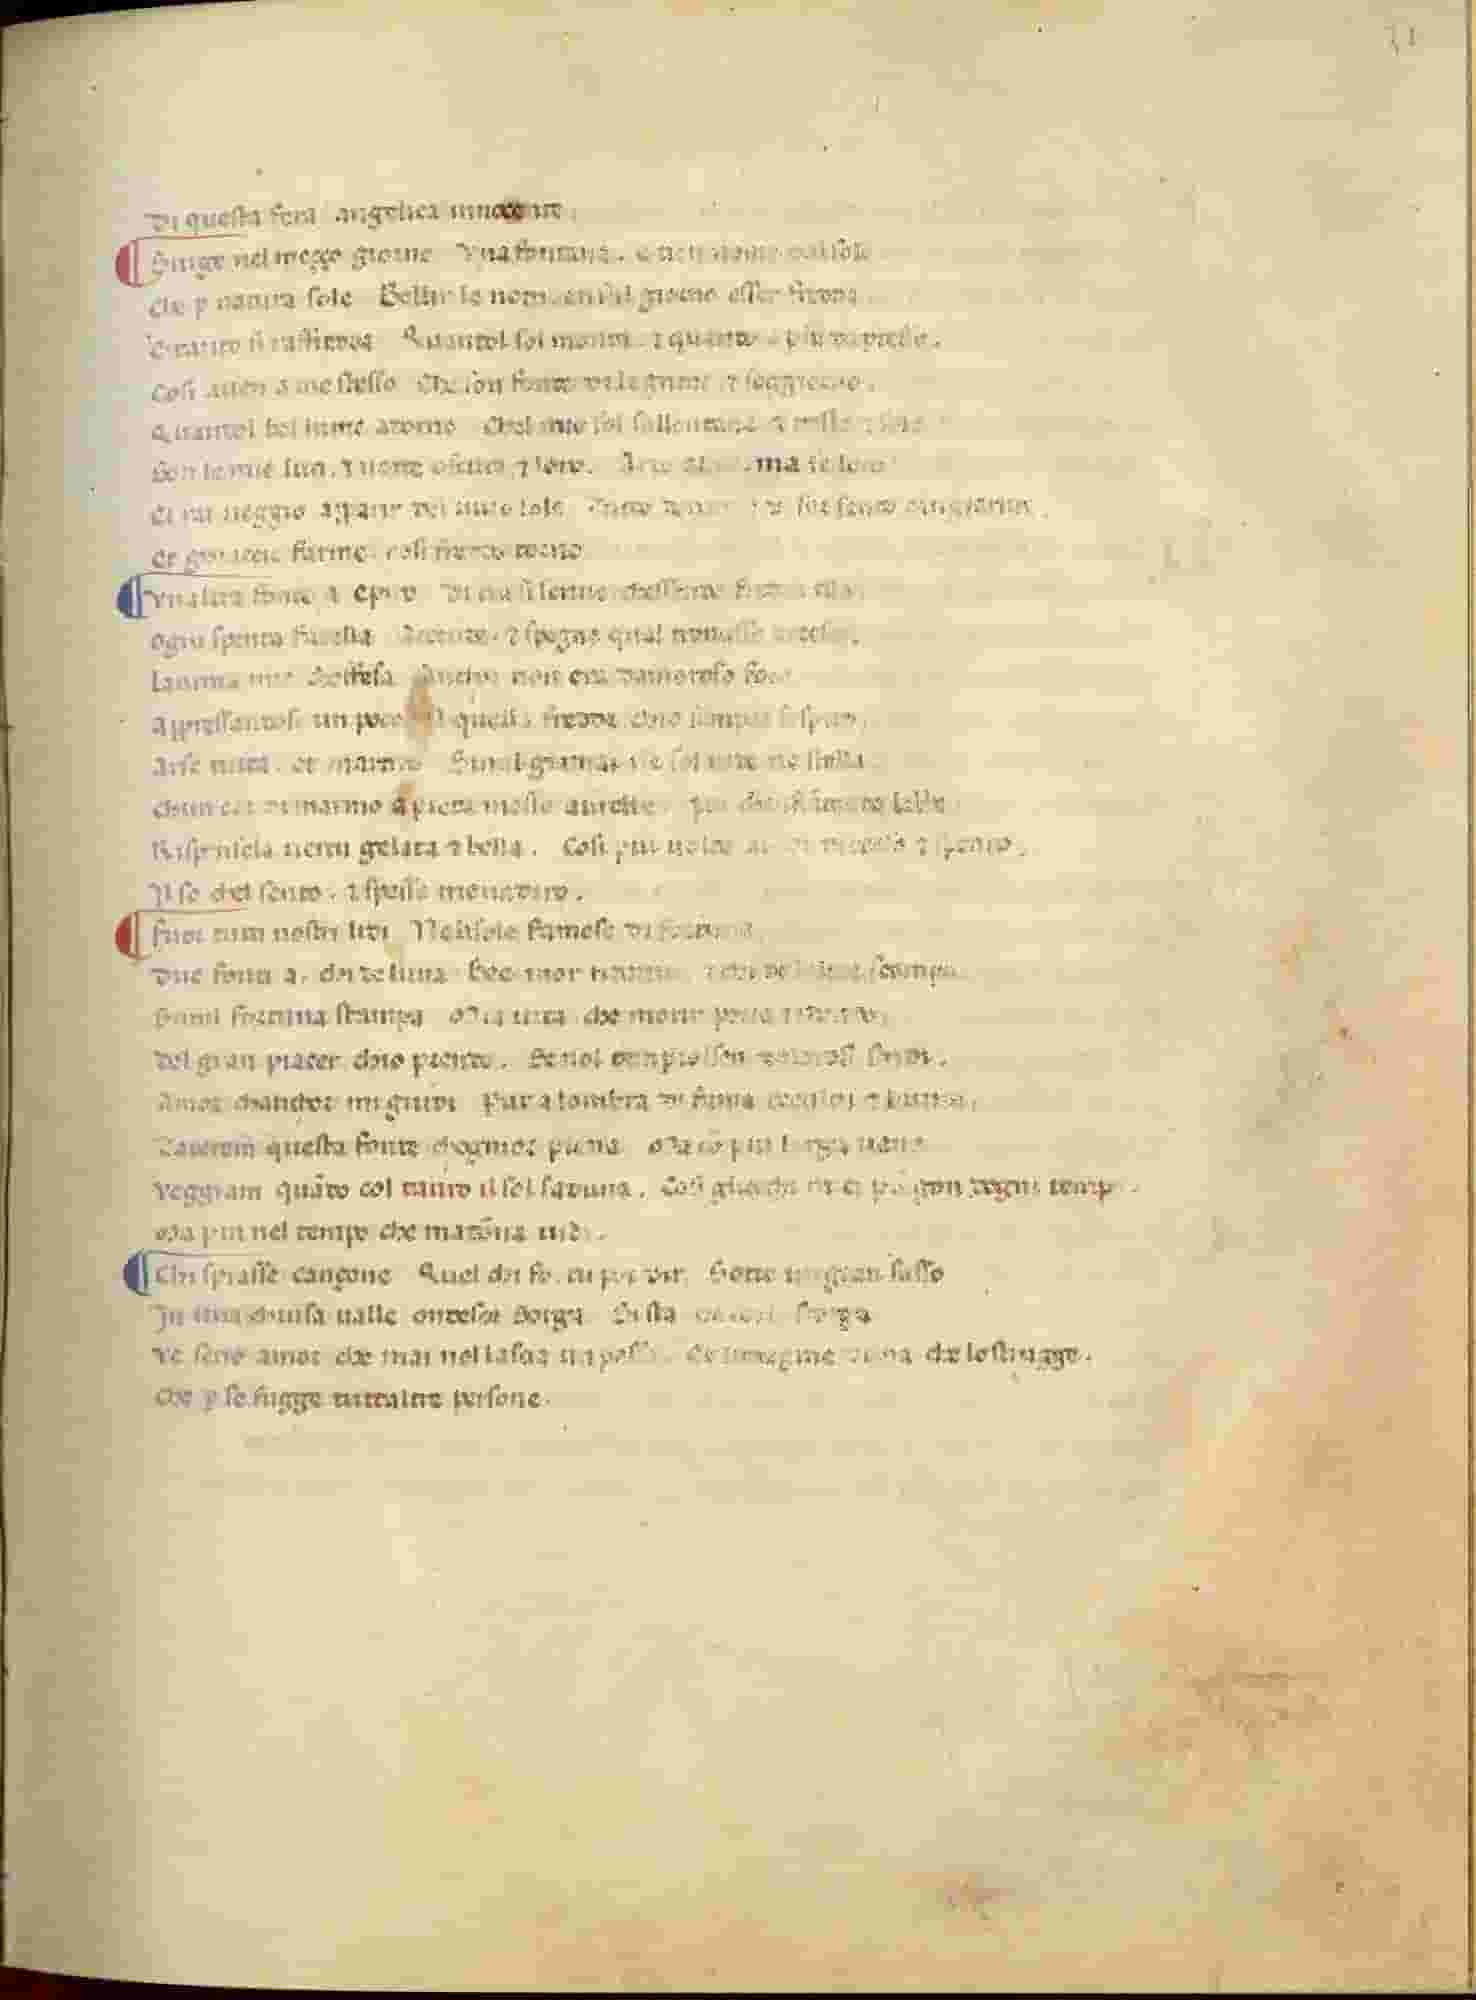 Di questa fera angelica innocente.
Surge nel meçço giorno Vna fontana. e tien nome dal sole
che p natura sole Bollir le nocti en sul giorno esser fredda
E tanto si raffredda Quantol sol monta. ⁊ quanto e piu dapresso.
Cosi auen a me stesso Che son fonte di lagrime ⁊ soggiorno.
Quandol bel lume adorno Chel mio sol sallontana ⁊ triste ⁊ sole
Son le mie luci. ⁊ notte oscura ⁊ loro. Ardo allor. ma se loro
Ei rai ueggio apparir del uiuo sole Tutto dentro ⁊ di for sento cangiarme.
Et ghiaccio farme. cosi freddo torno
Vnaltra fonte a Epiro Di cui si scriue chessendo fredda ella.
Ogni spenta facella Accende. ⁊ spegne qual trouasse accesa.
Lanima mia choffesa Anchor non era damoroso foco
Appressandosi un poco A quella fredda chio sempre sospiro.
Arse tutta. et martiro Simil giamai ne sol uide ne stella
Chun cor di marmo a pieta mosso aurebbe. Poi chenfiāmata lebbe
Rispensela uertu gelata ⁊ bella. Cosi piu uolte al cor racceso ⁊ spento.
Il so chel sento. ⁊ spesso menadiro.
Fuor tutti nostri lidi Nelisole famose di fortuna.
Due fonti a. chi de luna Bee mor ridendo. ⁊ chi de laltra scampa
Simil fortuna stampa Mia uita. che morir poria ridendo.
Del gran piacer chio prendo. Se nol temprassen dolorosi stridi.
Amor chanchor mi guidi Pur a lombra di fama occulta ⁊ bruna.
Tacerem questa fonte chognior piena Ma cō piu larga uena
Veggiam quādo col tauro il sol saduna. Cosi gliocchi miei piāgon dogni tempo.
Ma piu nel tempo che madōna uidi.
Chi spiasse cançone Quel chi fo. tu poi dir. Sotto un gran sasso
In una chiusa ualle ondesce Sorga Si sta. ne chi lo scorga
Ve seno amor che mai nol lascia un passo. Et limagine duna che lo strugge.
Che p se fugge tuttaltre persone.